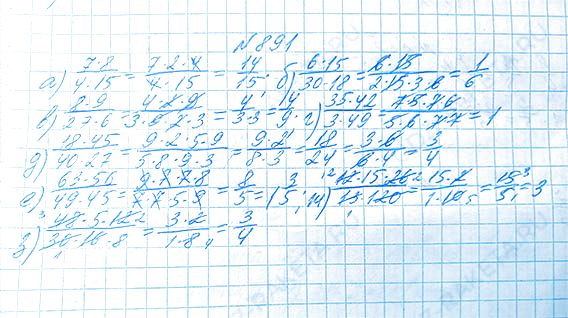 №891
а) 7·2/4·15 = 7·2·4/4·15 = 14/15; б) 6·15/30·18 = 6·15/2·15·3·6 = 1/6
в) 8·9/27·6 = 4·2·9/3·9·2·3 = 4/3·3 = 4/9. г) 35·42/3·49 = 7·5·7·6/5·6·7·7 = 1
д) 18·45/40·27 = 9·2·5·9/5·8·9·3 = 9·2/8·3 = 18/24 = 3·6/6·4 = 3/4
е) 63·56/49·45 = 9·7·7·8/7·7·5·9 = 8/5 = 1 3/5; ж) 12·15·26/13·120 = 15·2/1·10 = 15/5 = 3
з) 48·5·12/30·16·8 = 3·2/1·8 = 3/4